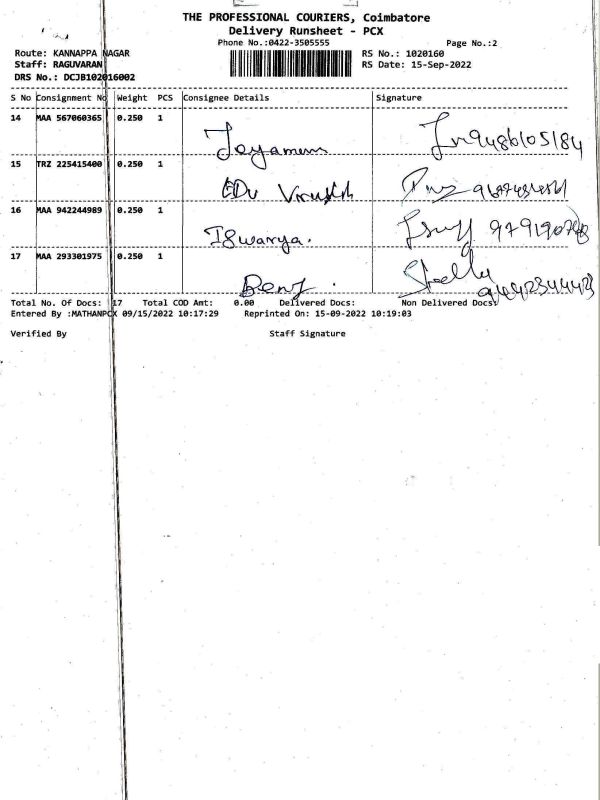 THE PROFESSIONAL COURIERS, Coimbatore
Delivery Runsheet - PCX
Phone No.:0422-3505555 Page No.:2
Route: KANNAPPA NAGAR RS No.: 1020160
Staff: RAGUVARAN RS Date: 15-Sep-2022
DRS No.: DCJB102016002
S No Consignment No Weight PCS Consignee Details Signature
14 MAA 567060365 0.250 1 Jayamani 9486105184
15 TRZ 225415400 0.250 1
16 MAA 942244989 0.250 1 Iswarya.
17 MAA 293301975 0.250 1 Benz.
Total No. Of Docs: 17 Total COD Amt: 0.00 Delivered Docs: Non Delivered Docs:
Entered By :MATHANPCX 09/15/2022 10:17:29 Reprinted On: 15-09-2022 10:19:03
Verified By Staff Signature